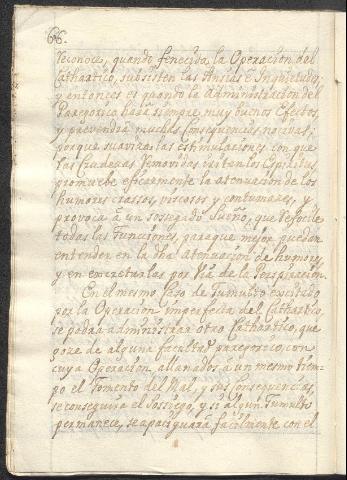 66.
reconoce, quando fenecida la Operacion del
Cathartico, subsisten las Ansias è Inquietudes;
y entonces es quando la Administracion del
Paregorico harà siempre muy buenos Efectos,
y prevendrà muchas consequencias nocivas;
porque suaviza las estimulaciones con que
las Crudezas removidas irritan los Espiritus,
promueve eficazmente la atenuacion de los
humores crassos, viscosos y contumaces, y
provoca à un sossegado sueño, que
todas las Funciones, para que mejor puedan
entender en la dha atenuacion de humores,
y en excretarlos por Via de la Perspiracion.
En el mismo Caso de Tumulto excitado
por la Operacion imperfecta del Cathartico,
se podrà administrar otro Cathartico, que
goze de alguna facultad paregorico, con
cuya Operacion, allanados à un mesmo tiem-
po el Fomento del Mal, y sus consequencias,
se conseguira el Sossiego, y si algun Tumulto
permanece, se apaciguarà facilmente con el